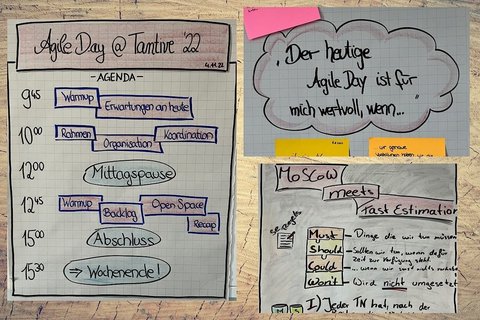 Agile Day @ Tantive '22
4.11.22
- AGENDA -
9 45 Warmup Erwartungen an heute
10 00 Rahmen Organisation Koordination
12 00 Mittagspause
12 45 Warmup Backlog Open Space Recap
15 00 Abschluss
15 30 ⇒ Wochenende!
"Der heutige
Agile Day ist für
mich wertvoll, wenn..."
MoSCoW
meets
Fast Estimation
Must - Dinge die wir tun müssen
Should - Sollten wir tun, wenn dafür
Zeit zur Verfügung steht.
Could - ... wenn wir sonst nichts
Won't - Wird nicht umgesetzt
M S
1) Jeder TN hat, nach der